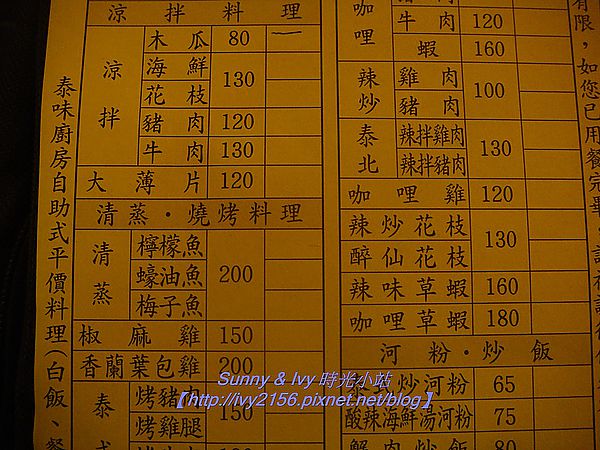 泰味廚房自助式平價料理(白飯、餐
涼拌料理
涼拌 木瓜 80
海鮮 130
花枝
豬肉 120
牛肉 130
大薄片 120
清蒸·燒烤料理
清蒸 檸檬魚 200
蠔油魚
梅子魚
椒麻雞 150
香蘭葉包雞 200
泰式 烤豬肉 150
烤雞腿
咖哩 豬肉
牛肉 120
蝦 160
辣炒 雞肉 100
豬肉
泰北 辣拌雞肉 130
辣拌豬肉
咖哩雞 120
辣炒花枝 130
醉仙花枝
辣味草蝦 160
咖哩草蝦 180
河粉·炒飯
炒河粉 65
酸辣海鮮湯河粉 75
蟹肉炒飯 80
有限,如您已用餐完畢,請
Sunny & Ivy 時光小站
【http://ivy2156.pixnet.net/blog】